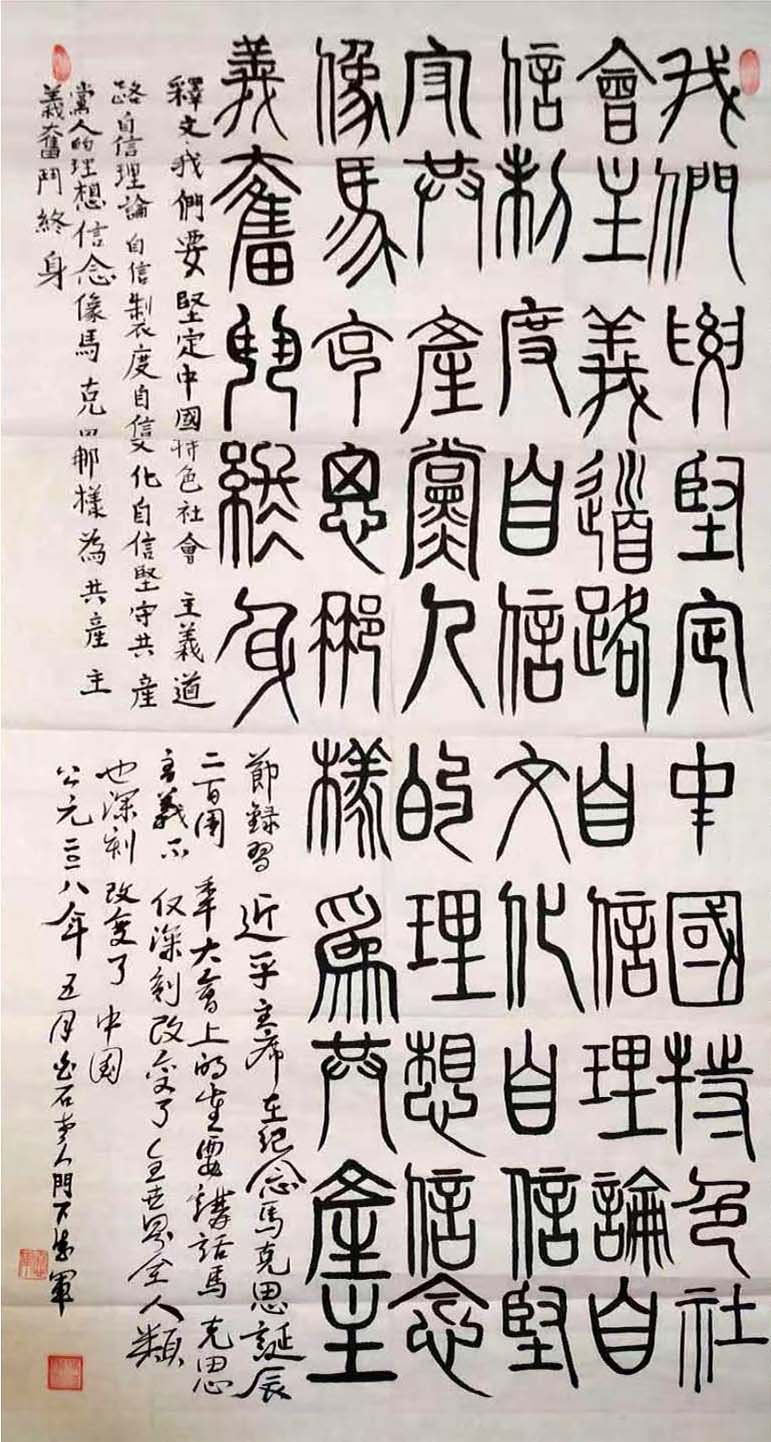 我們要堅定中國特色社
會主義道路自信理論自
信制度自信文化自信堅
守共產黨人的理想信念
像馬克思那樣爲共產主
義奮鬥終身
釋文:我們要堅定中國特色社會主義道
路自信理論自信製度自信文化自信堅守共產
黨人的理想信念像馬克思那樣為共產主
義奮鬥終身
節錄習近平主席在紀念馬克思誕辰
二百周年大會上的重要講話馬克思
主義不仅深刻改变了全世界全人類
也深刻改变了中国
公元二〇一八年五月白石老人門下軍